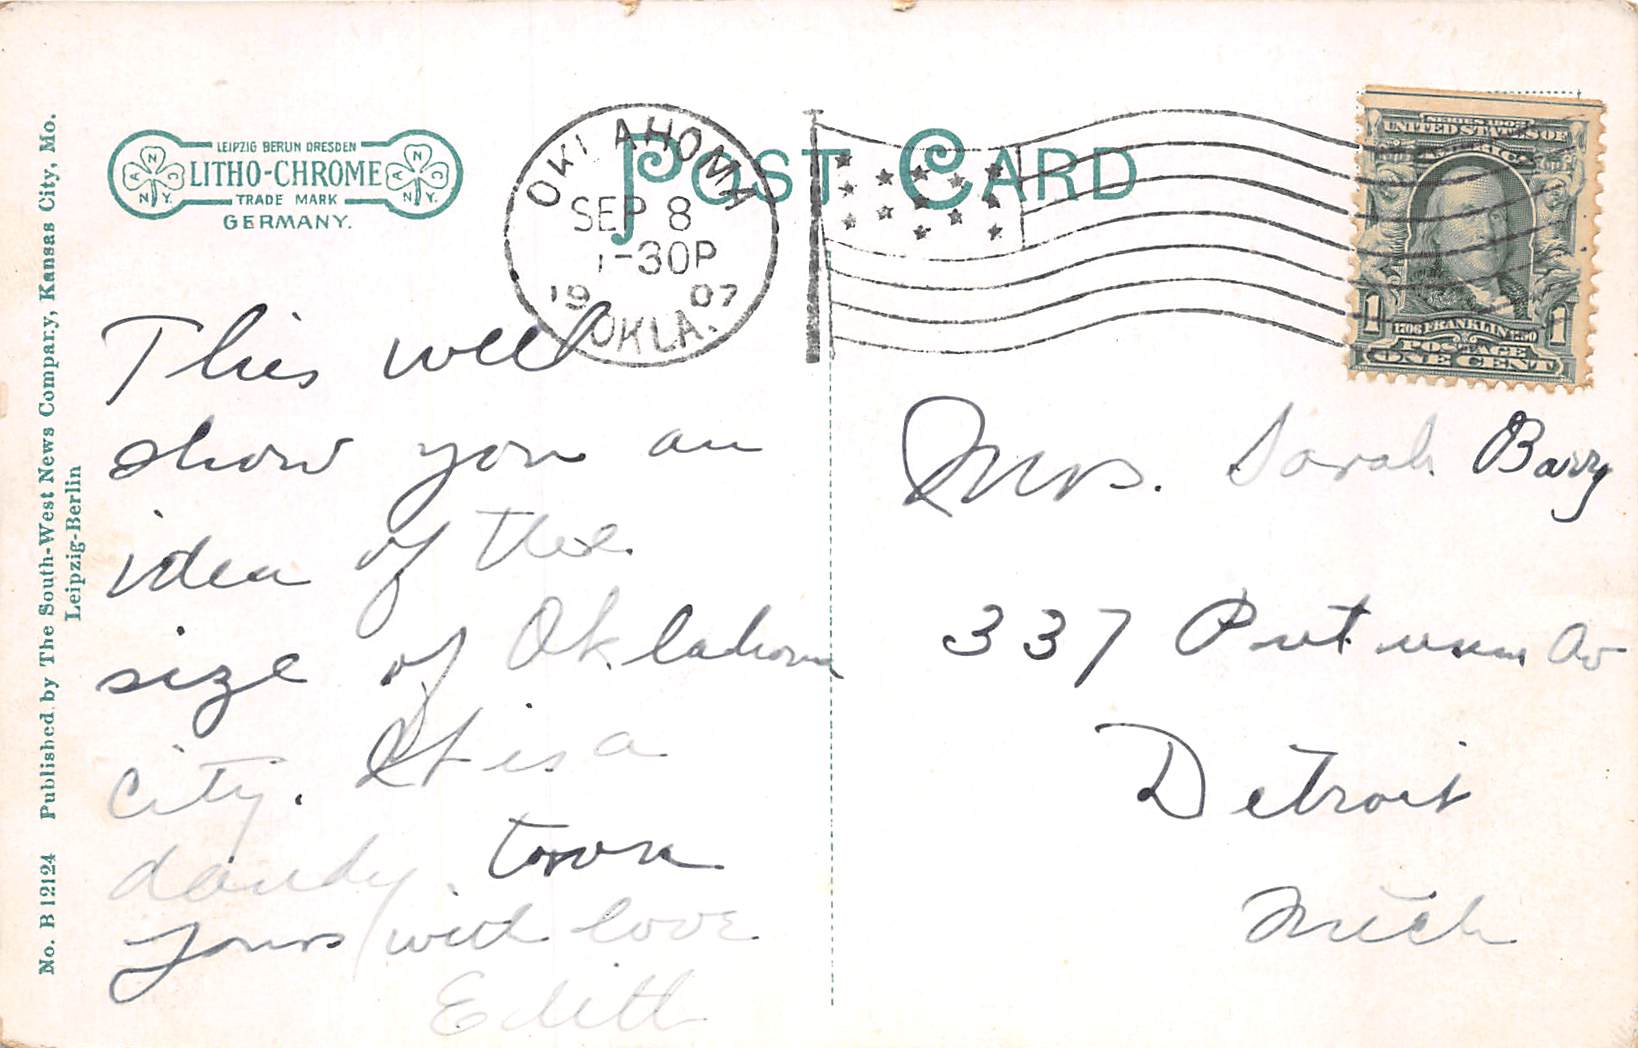 LEIPZIG BERLIN DRESDEN
LITHO-CHROME
TRADE MARK
GERMANY.
ANCNY.
ANCNY.
POST CARD
OKLAHOMA
SEP 8
1-30P
1907
OKLA.
SERIES 1902
UNITED STATES OF
AMERICA
1 1
1706 FRANKLIN 1790
POSTAGE
ONE CENT
No. B 12124 Published by The South-West News Company, Kansas City, Mo.
Leipzig-Berlin
This will
show you an
idea of the
size of Oklahoma
City. It is a
dandy town
Yours with love
Edith
Mrs. Sarah Barry
337 Putnam Av
Detroit
Mich